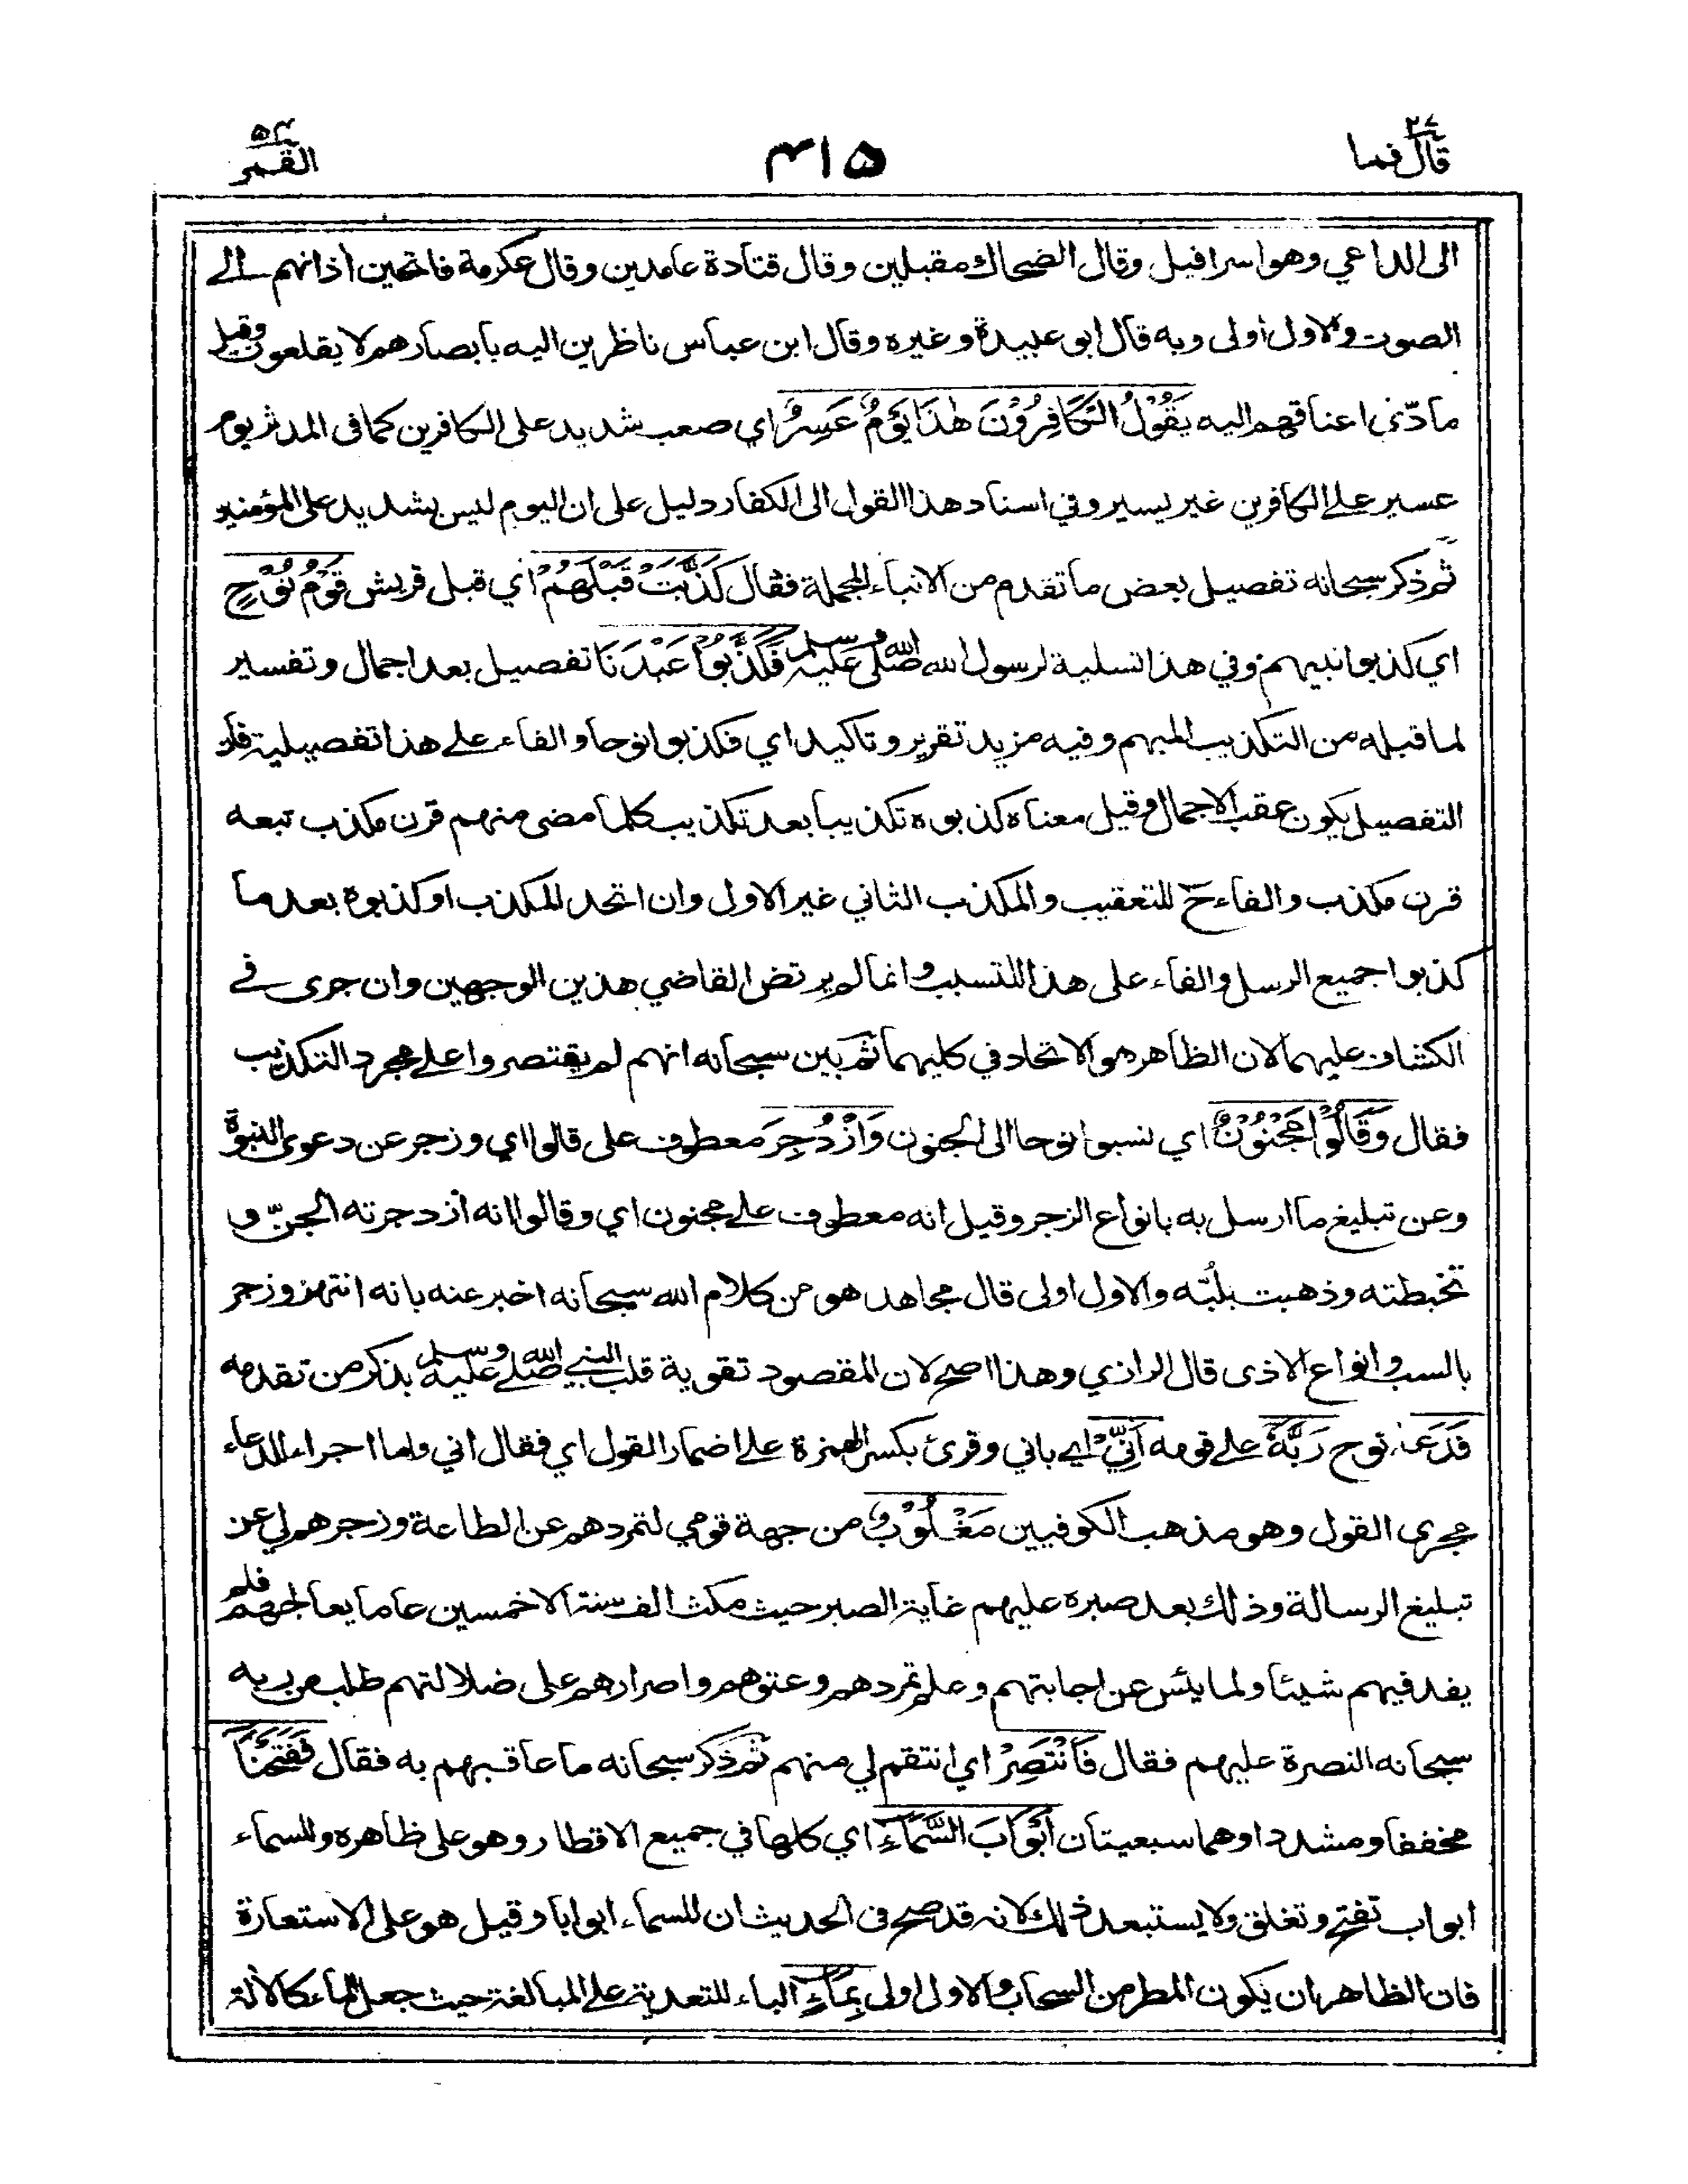 قال فما ٢٧
٤١٥
القمر ٥٤
الى الداعي وهو اسرافيل وقال الضحاك مقبلين وقال قتادة عامدين وقال عكرمة فاتحين اذانهم الى
الصوت والاول أولى وبه قال ابو عبيدة وغيره وقال ابن عباس ناظرين اليه بابصارهم لا يقلعون وقيل
مادّى اعناقهم اليه يَقُوْلُ الْكَافِرُوْنَ هٰذَا يَوْمٌ عَسِرٌ اي صعب شديد على الكافرين كما فى المدثر يوم
عسير على الكافرين غير يسير وفي اسناد هذا القول الى الكفار دليل على ان اليوم ليس بشديد على المؤمنين
ثم ذكر سبحانه تفصيل بعض ما تقدم من الانباء المجملة فقال كَذَّبَتْ قَبْلَهُمْ اي قبل قريش قَوْمُ نُوْحٍ
اي كذبوا نبيهم وفي هذا تسلية لرسول الله صلى الله عليه وسلم فَكَذَّبُوْا عَبْدَنَا تفصيل بعد اجمال وتفسير
لما قبله من التكذيب المبهم وفيه مزيد تقرير وتاكيد اي فكذبوا نوحا والفاء على هذا تفصيلية فان
التفصيل يكون عقب الاجمال وقيل معناه كذبوه تكذيبا بعد تكذيب كلما مضى منهم قرن مكذب تبعه
قرن مكذب والفاء ح للتعقيب والمكذب الثاني غير الاول وان اتحد المكذب او كذبوه بعد ما
كذبوا جميع الرسل والفاء على هذا للتسبب وانما لم يرتض القاضي هذين الوجهين وان جرى في
الكشاف عليهما لان الظاهر هو الاتحاد في كليهما ثم بين سبحانه انهم لم يقتصروا على مجرد التكذيب
فقال وَقَالُوْا مَجْنُوْنٌ اي نسبوا نوحا الى الجنون وَازْدُجِرَ معطوف على قالوا اي وزجر عن دعوى النبوة
وعن تبليغ ما ارسل به بانواع الزجر وقيل انه معطوف على مجنون اي وقالوا انه ازدجرته الجنّ و
تخبطته وذهبت بلُبّه والاول اولى قال مجاهد هو من كلام الله سبحانه اخبر عنه بانه انتهز وزجر
بالسب وانواع الاذى قال الرازي وهذا اصح لان المقصود تقوية قلب النبي صلى الله عليه وسلم بذكر من تقدمه
فَدَعَا نوح رَبَّهٗ على قومه اَنِّيْ اي باني وقرئ بكسر الهمزة على اضمار القول اي فقال اني واما اجراء الدعاء
مجرى القول وهو مذهب الكوفيين مَغْلُوْبٌ من جهة قومي لتمردهم عن الطاعة وزجرهم لي عن
تبليغ الرسالة وذلك بعد صبره عليهم غاية الصبر حيث مكث الف سنة الا خمسين عاما يعالجهم فلم
يفد فيهم شيئا ولما يئس عن اجابتهم وعلم تمردهم وعتوهم واصرارهم على ضلالتهم طلب من ربه
سبحانه النصرة عليهم فقال فَانْتَصِرْ اي انتقم لي منهم ثم ذكر سبحانه ما عاقبهم به فقال فَفَتَحْنَا
مخففا ومشددا وهما سبعيتان اَبْوَابَ السَّمَآءِ اي كلها في جميع الاقطار وهو على ظاهره وللسماء
ابواب تفتح وتغلق ولا يستبعد ذلك لانه قد صح فى الحديث ان للسماء ابوابا وقيل هو على الاستعارة
فان الظاهر ان يكون المطر من السحاب والاول اولى بِمَآءٍ الباء للتعدية على المبالغة حيث جعل الماء كالآلة